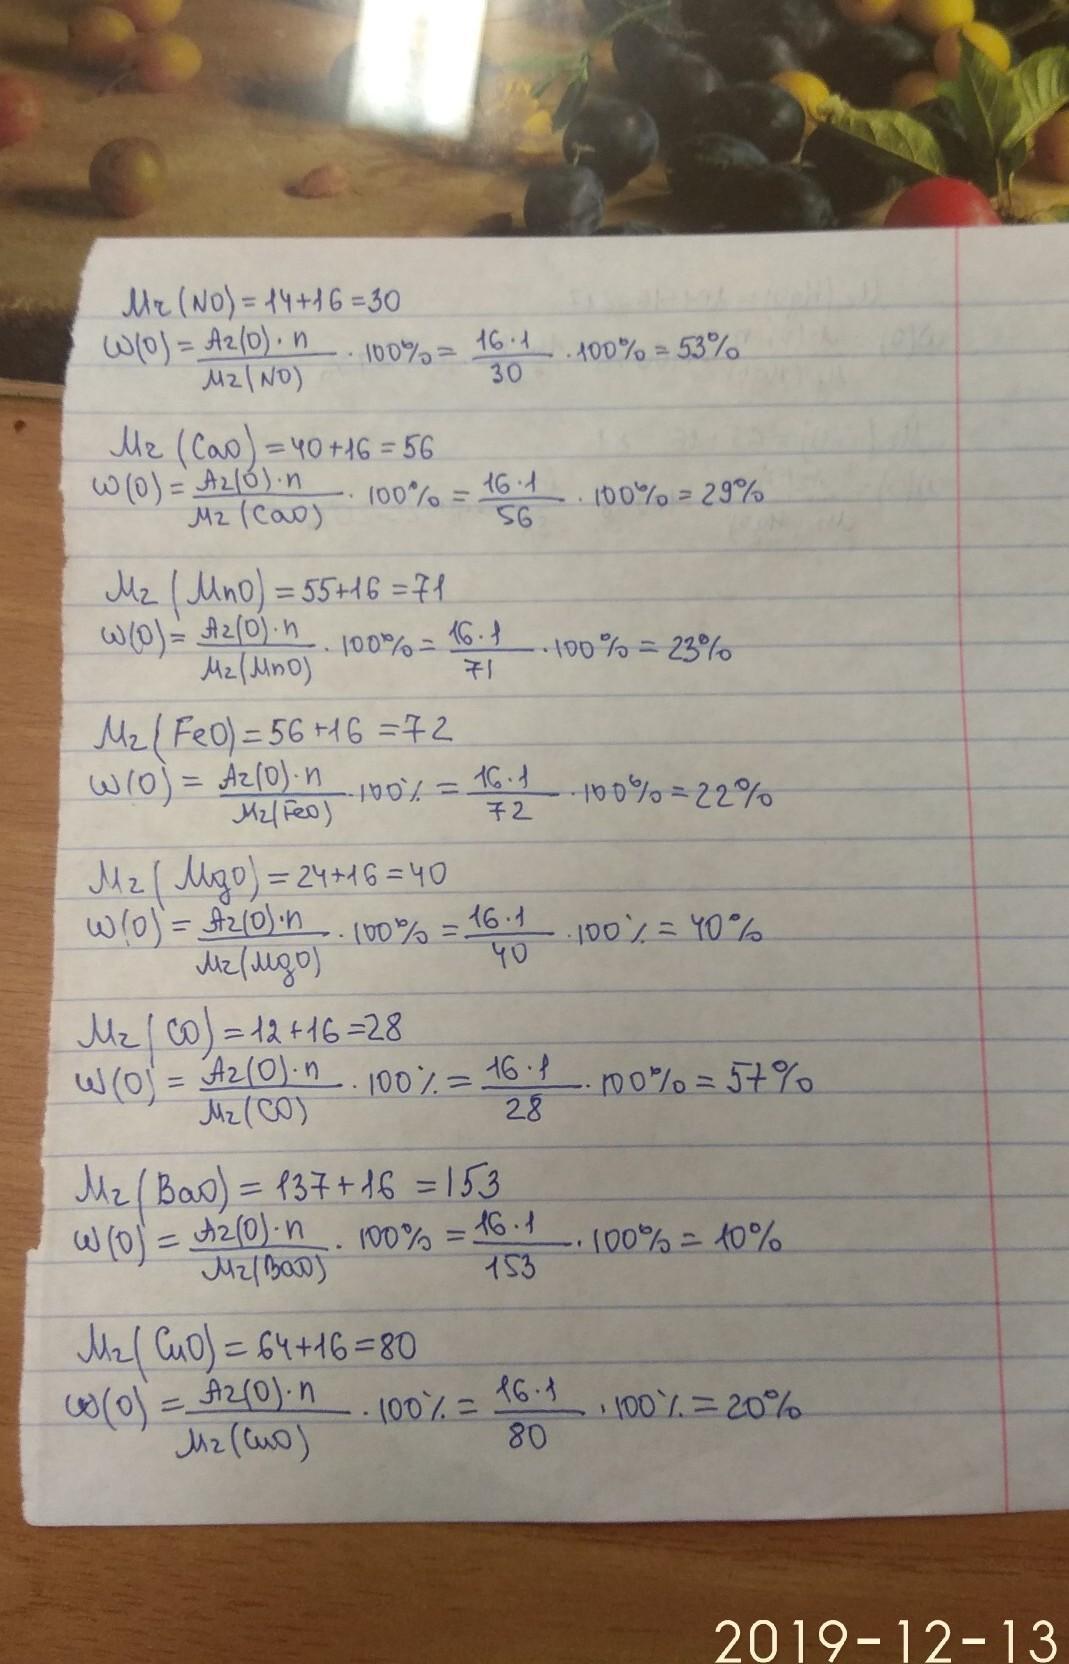 Mr(NO)=14+16=30
W(O)=Ar(O)·n/Mr(NO)·100%=16·1/30·100%=53%
Mr(CaO)=40+16=56
W(O)=Ar(O)·n/Mr(CaO)·100%=16·1/56·100%=29%
Mr(MnO)=55+16=71
W(O)=Ar(O)·n/Mr(MnO)·100%=16·1/71·100%=23%
Mr(FeO)=56+16=72
W(O)=Ar(O)·n/Mr(FeO)·100%=16·1/72·100%=22%
Mr(MgO)=24+16=40
W(O)=Ar(O)·n/Mr(MgO)·100%=16·1/40·100%=40%
Mr(CO)=12+16=28
W(O)=Ar(O)·n/Mr(CO)·100%=16·1/28·100%=57%
Mr(BaO)=137+16=153
W(O)=Ar(O)·n/Mr(BaO)·100%=16·1/153·100%=10%
Mr(CuO)=64+16=80
W(O)=Ar(O)·n/Mr(CuO)·100%=16·1/80·100%=20%
2019-12-13